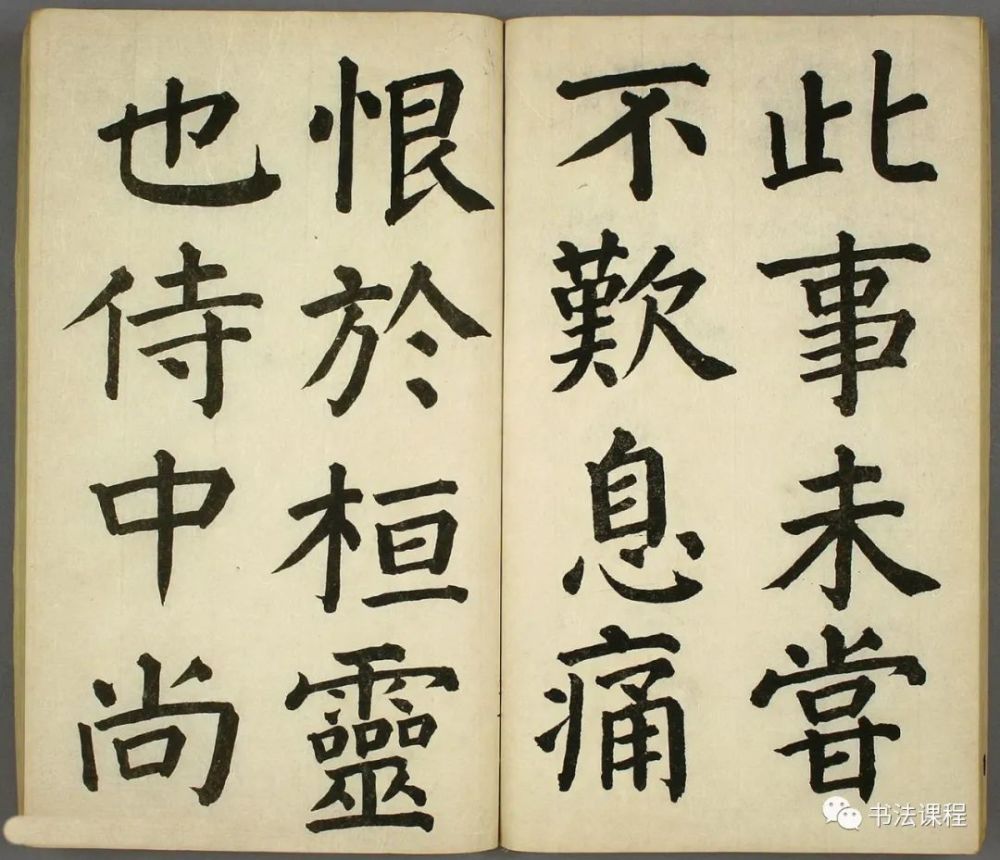 此事未甞
不歎息痛
恨於桓靈
也侍中尚
书法课程